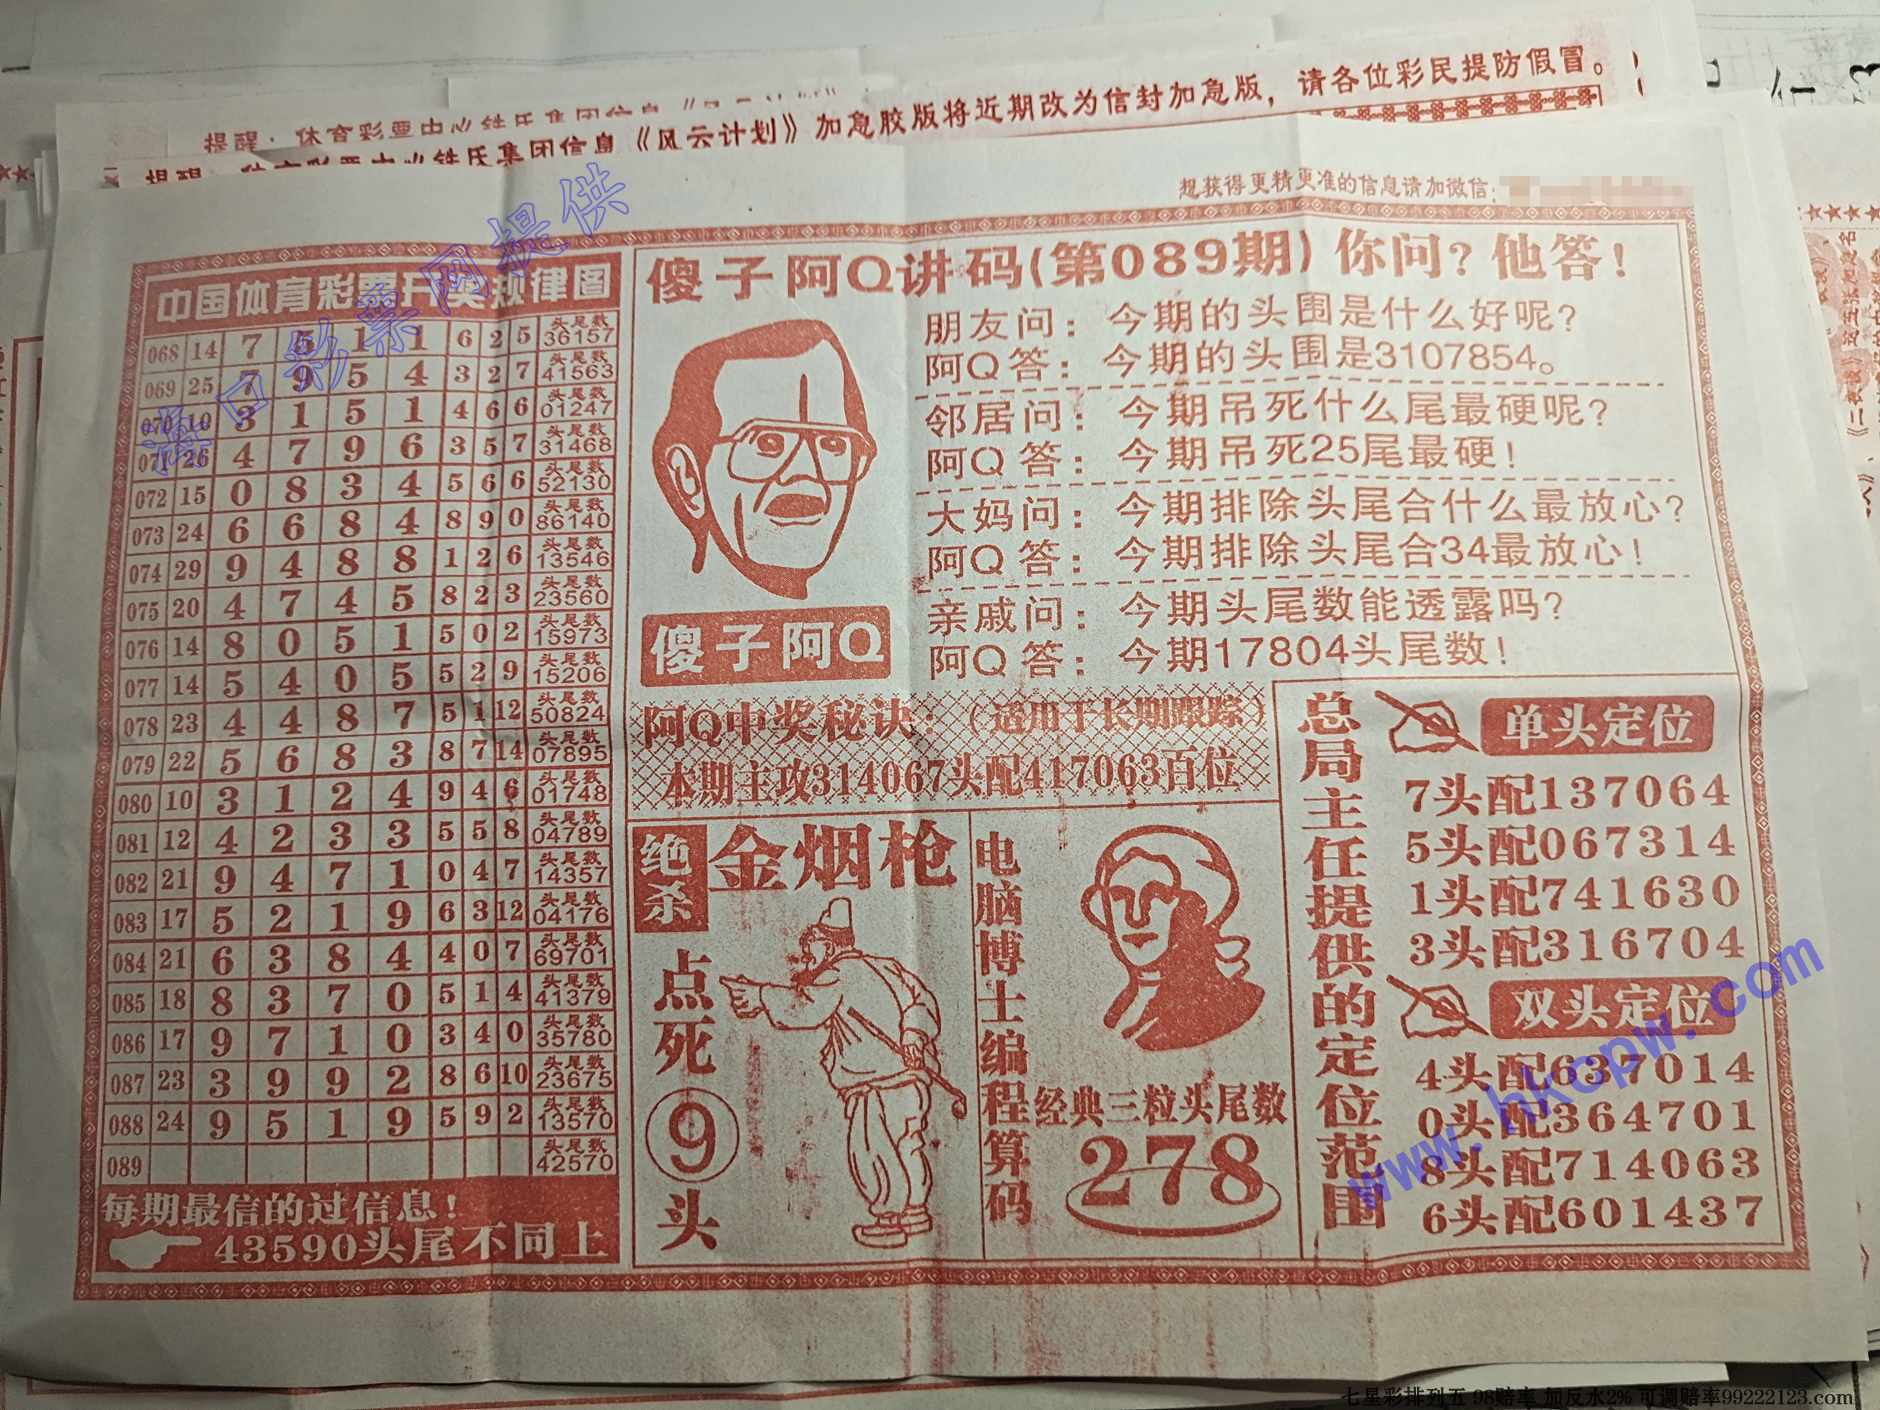 提醒：体育彩票中心铁氏集团信息《风云计划》
提醒：体育彩票中心铁氏集团信息《风云计划》加急胶版将近期改为信封加急版，请各位彩民提防假冒。
想获得更精更准的信息请加微信：
海口彩票网提供
中国体育彩票开奖规律图
068 14 7 5 1 1 6 2 5 头尾数 36157
069 25 7 9 5 4 3 2 7 头尾数 41563
070 10 3 1 5 1 4 6 6 头尾数 01247
071 26 4 7 9 6 3 5 7 头尾数 31468
072 15 0 8 3 4 5 6 6 头尾数 52130
073 24 6 6 8 4 8 9 0 头尾数 86140
074 29 9 4 8 8 1 2 6 头尾数 13546
075 20 4 7 4 5 8 2 3 头尾数 23560
076 14 8 0 5 1 5 0 2 头尾数 15973
077 14 5 4 0 5 5 2 9 头尾数 15206
078 23 4 4 8 7 5 1 12 头尾数 50824
079 22 5 6 8 3 8 7 14 头尾数 07895
080 10 3 1 2 4 9 4 6 头尾数 01748
081 12 4 2 3 3 5 5 8 头尾数 04789
082 21 9 4 7 1 0 4 7 头尾数 14357
083 17 5 2 1 9 6 3 12 头尾数 04176
084 21 6 3 8 4 4 0 7 头尾数 69701
085 18 8 3 7 0 5 1 4 头尾数 41379
086 17 9 7 1 0 3 4 0 头尾数 35780
087 23 3 9 9 2 8 6 10 头尾数 23675
088 24 9 5 1 9 5 9 2 头尾数 13570
089 头尾数 42570
每期最信的过信息！
43590头尾不同上
傻子阿Q讲码(第089期)你问？他答！
朋友问：今期的头围是什么好呢？
阿Q答：今期的头围是3107854。
邻居问：今期吊死什么尾最硬呢？
阿Q答：今期吊死25尾最硬！
大妈问：今期排除头尾合什么最放心？
阿Q答：今期排除头尾合34最放心！
亲戚问：今期头尾数能透露吗？
阿Q答：今期17804头尾数！
傻子阿Q
阿Q中奖秘诀：（适用于长期跟踪）
本期主攻314067头配417063百位
绝杀
金烟枪
点死
9
头
电脑博士编程算码
经典三粒头尾数
278
总局主任提供的定位范围
单头定位
7头配137064
5头配067314
1头配741630
3头配316704
双头定位
4头配637014
0头配364701
8头配714063
6头配601437
www.hkcpw.com
七星彩排列五 98赔率 加反水2% 可调赔率99222123.com